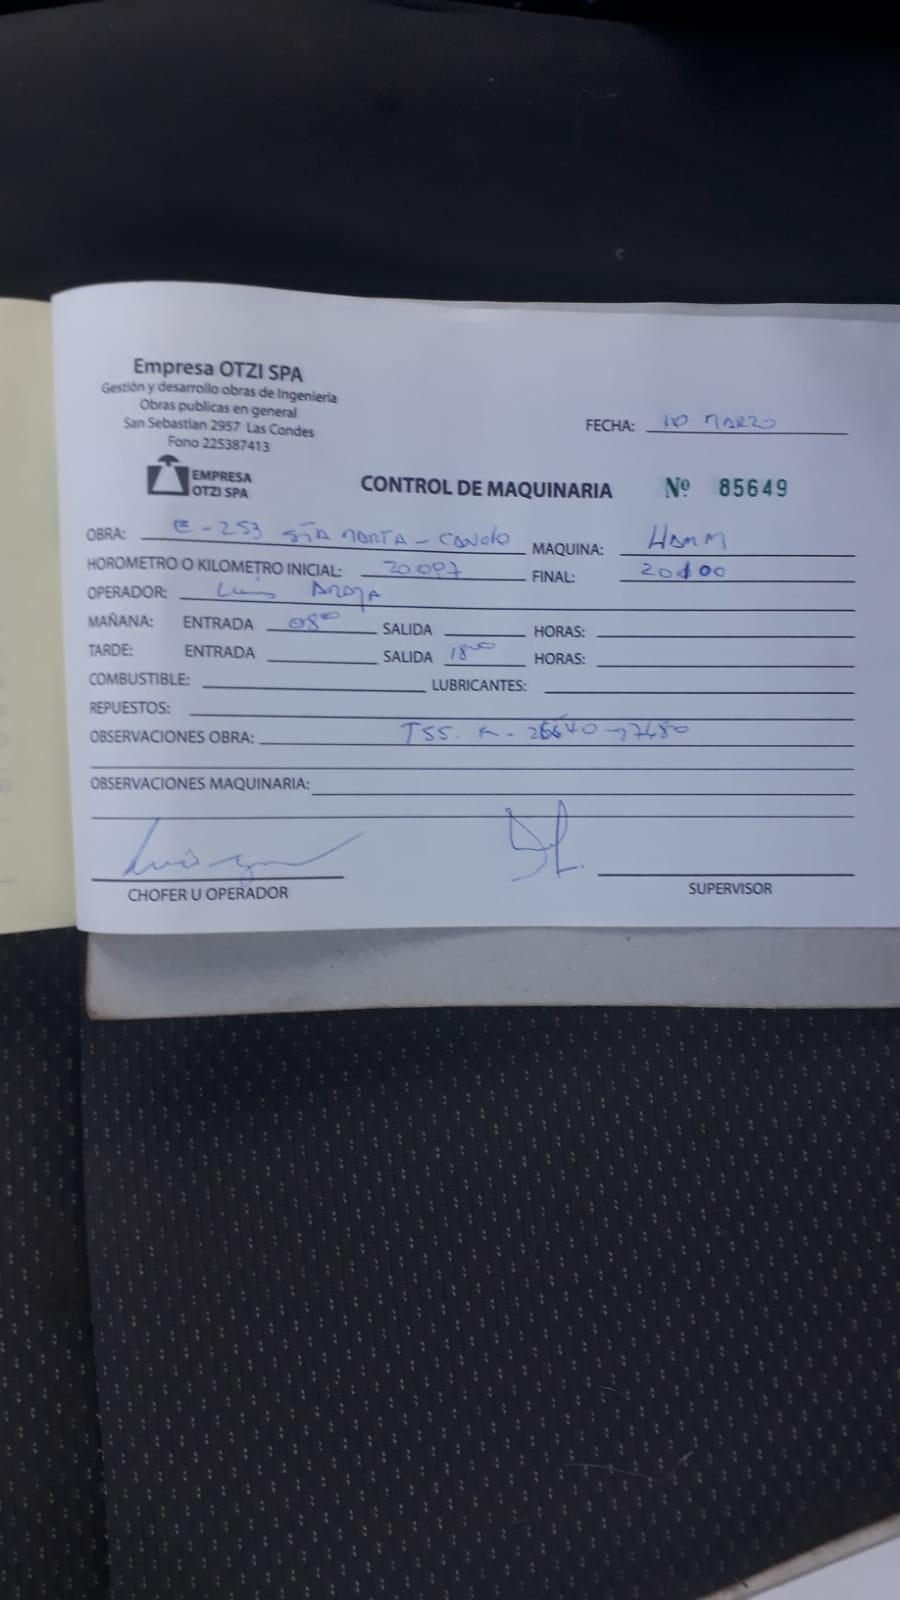 Empresa OTZI SPA
Gestión y desarrollo obras de Ingeniería
Obras publicas en general
San Sebastian 2957 Las Condes
Fono 225387413
EMPRESA
OTZI SPA
FECHA: 10 MARZO
CONTROL DE MAQUINARIA Nº 85649
OBRA: E-253 STA MARTA - CANELO MAQUINA: HAMM
HOROMETRO O KILOMETRO INICIAL: 20097 FINAL: 20100
OPERADOR: Luis ARAYA
MAÑANA: ENTRADA 08°° SALIDA HORAS:
TARDE: ENTRADA SALIDA 18°° HORAS:
COMBUSTIBLE: LUBRICANTES:
REPUESTOS:
OBSERVACIONES OBRA: TSS. 27480
OBSERVACIONES MAQUINARIA:
CHOFER U OPERADOR SUPERVISOR